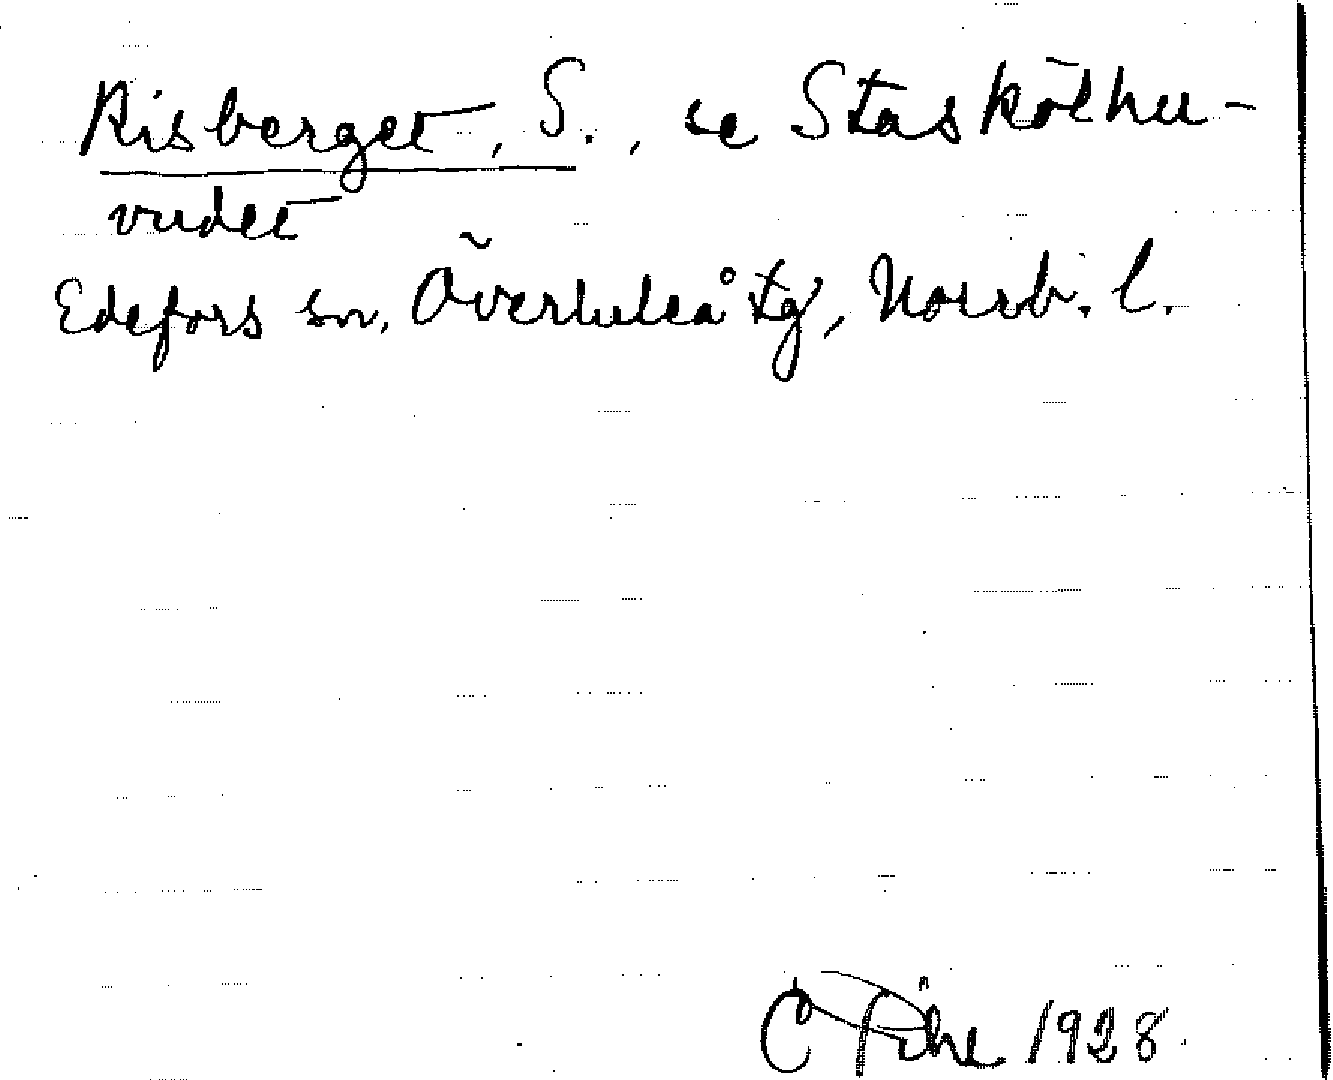 Risberget, S., se Staskölhu-
vudet
Edefors sn, Överluleå tg, Norrb. l.
1928